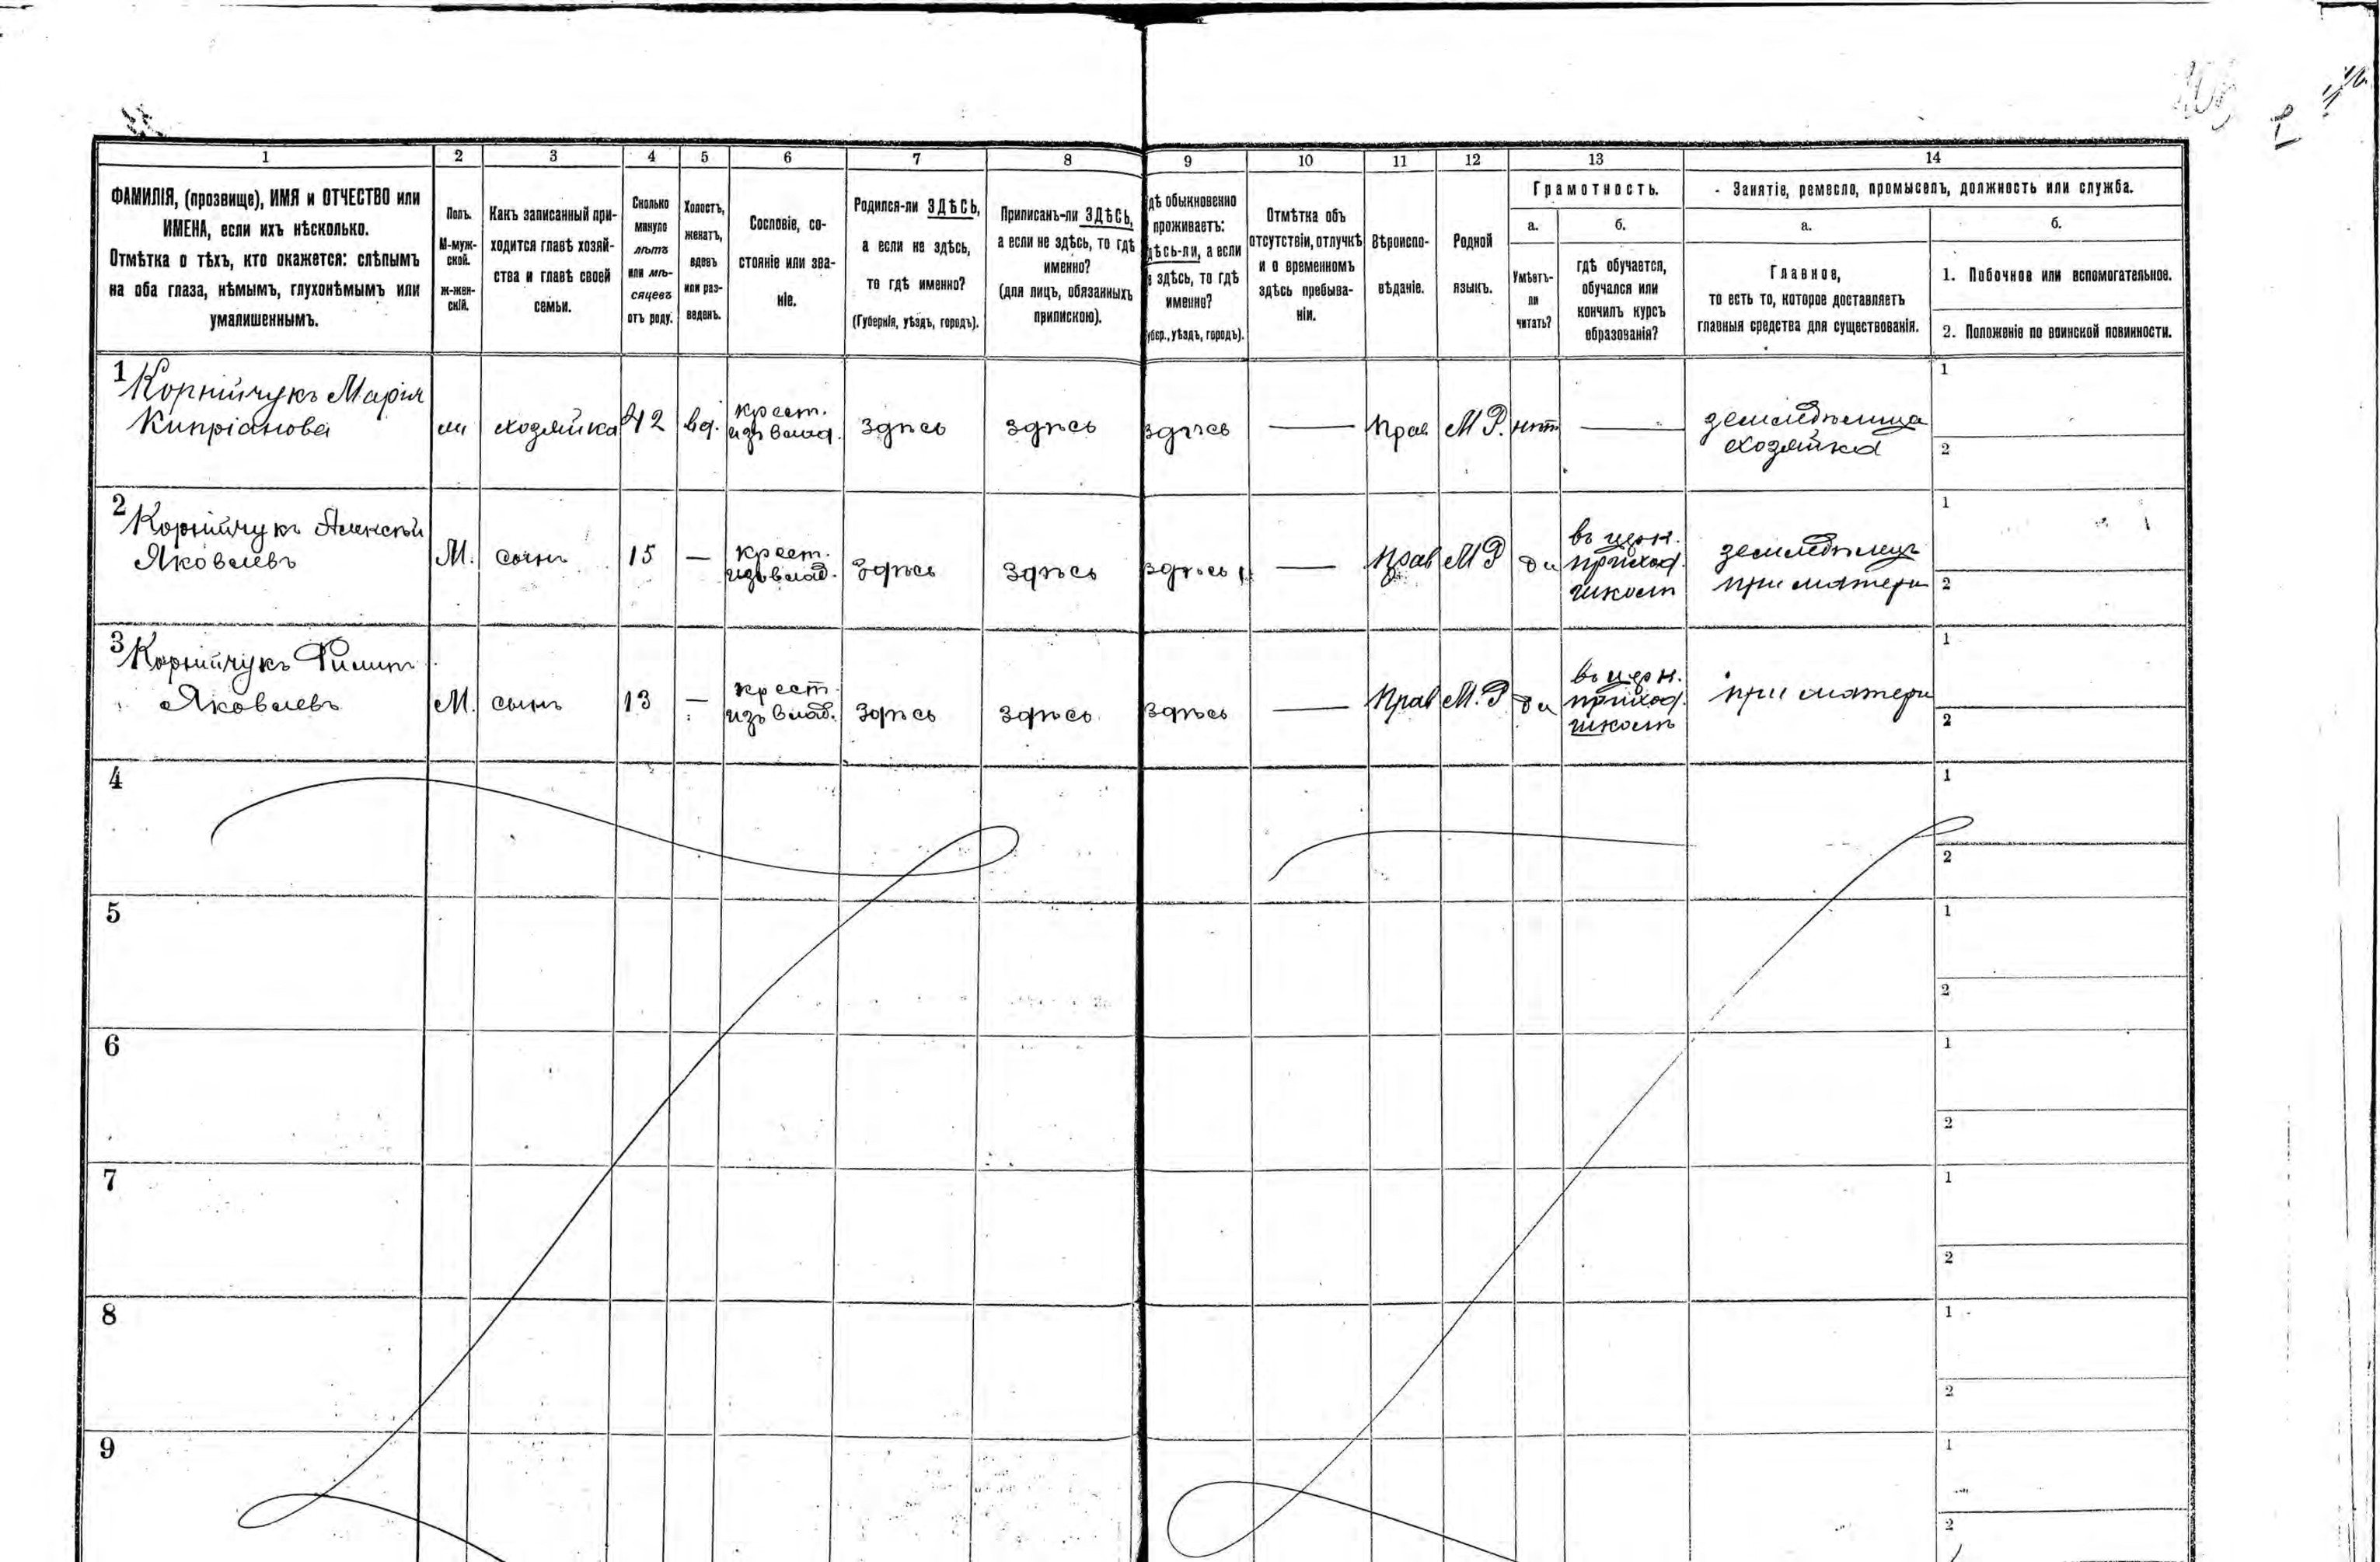 1 2 3 4 5 6 7 8 9 10 11 12 13 14
ФАМИЛІЯ, (прозвище), ИМЯ и ОТЧЕСТВО или
ИМЕНА, если ихъ нѣсколько.
Отмѣтка о тѣхъ, кто окажется: слѣпымъ
на оба глаза, нѣмымъ, глухонѣмымъ или
умалишеннымъ.
Полъ.
М-муж-
ской.
Ж-жен-
скій.
Какъ записанный при-
ходится главѣ хозяй-
ства и главѣ своей
семьи.
Сколько
минуло
лѣтъ
или мѣ-
сяцевъ
отъ роду.
Холостъ,
женатъ,
вдовъ
или раз-
веденъ.
Сословіе, со-
стояніе или зва-
ніе.
Родился-ли ЗДѢСЬ,
а если не здѣсь,
то гдѣ именно?
(Губернія, уѣздъ, городъ).
Приписанъ-ли ЗДѢСЬ,
а если не здѣсь, то гдѣ
именно?
(для лицъ, обязанныхъ
припискою).
дѣ обыкновенно
проживаетъ:
дѣсь-ли, а если
е здѣсь, то гдѣ
именно?
убер., уѣздъ, городъ).
Отмѣтка объ
отсутствіи, отлучкѣ
и о временномъ
здѣсь пребыва-
ніи.
Вѣроиспо-
вѣданіе.
Родной
языкъ.
Грамотность.
а.
Умѣетъ-
ли
читать?
б.
гдѣ обучается,
обучался или
кончилъ курсъ
образованія?
Занятіе, ремесло, промыселъ, должность или служба.
а.
Главное,
то есть то, которое доставляетъ
главныя средства для существованія.
б.
1. Побочное или вспомогательное.
2. Положеніе по воинской повинности.
1 Корнійчукъ Марія
Кипріанова
ж
хозяйка
42
вд.
крест.
изъ влад.
здѣсь
здѣсь
здѣсь
—
прав
М Р.
нѣт
—
земледѣлица
хозяйка
1
2
2 Корнійчукъ Алексѣй
Яковлевъ
М.
сынъ
15
—
крест.
изъ влад.
здѣсь
здѣсь
здѣсь
—
прав
М Р
да
въ церк.
приход.
школѣ
земледѣлецъ
при матери
1
2
3 Корнійчукъ Филипъ
Яковлевъ
М.
сынъ
13
—
крест.
изъ влад.
здѣсь
здѣсь
здѣсь
—
прав
М. Р
да
въ церк.
приход.
школѣ
при матери
1
2
4
1
2
5
1
2
6
1
2
7
1
2
8
1
2
9
1
2